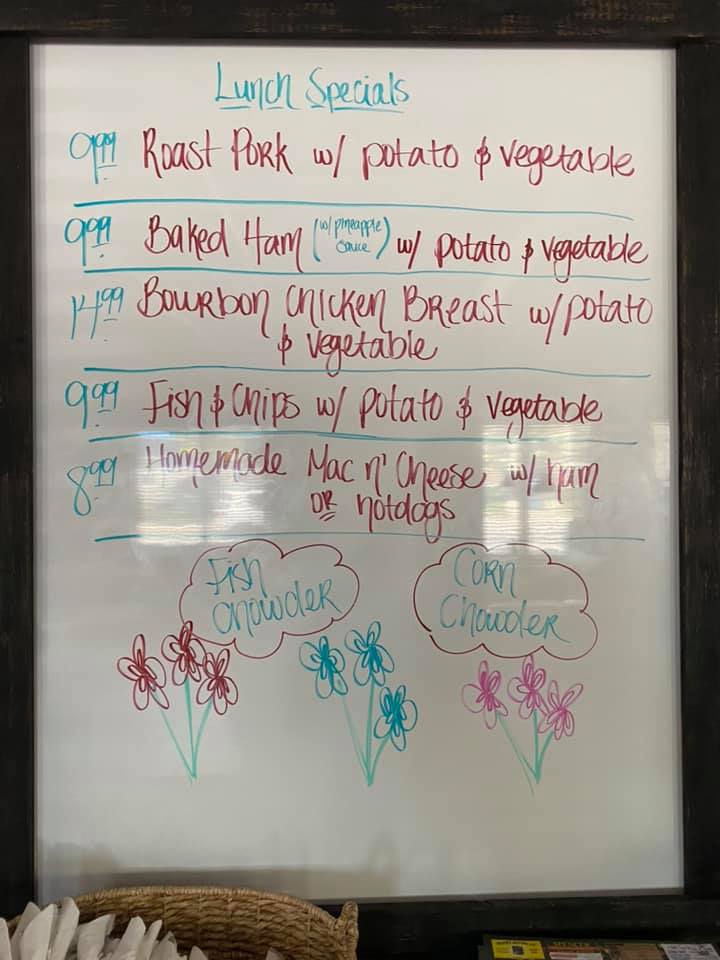 Lunch Specials
9.99 Roast Pork w/ potato & vegetable
9.99 Baked Ham (w/ pineapple sauce) w/ potato & vegetable
14.99 Bourbon Chicken Breast w/ potato
& vegetable
9.99 Fish & Chips w/ potato & vegetable
8.99 Homemade Mac n' Cheese w/ ham
OR hotdogs
Fish
Chowder
Corn
Chowder